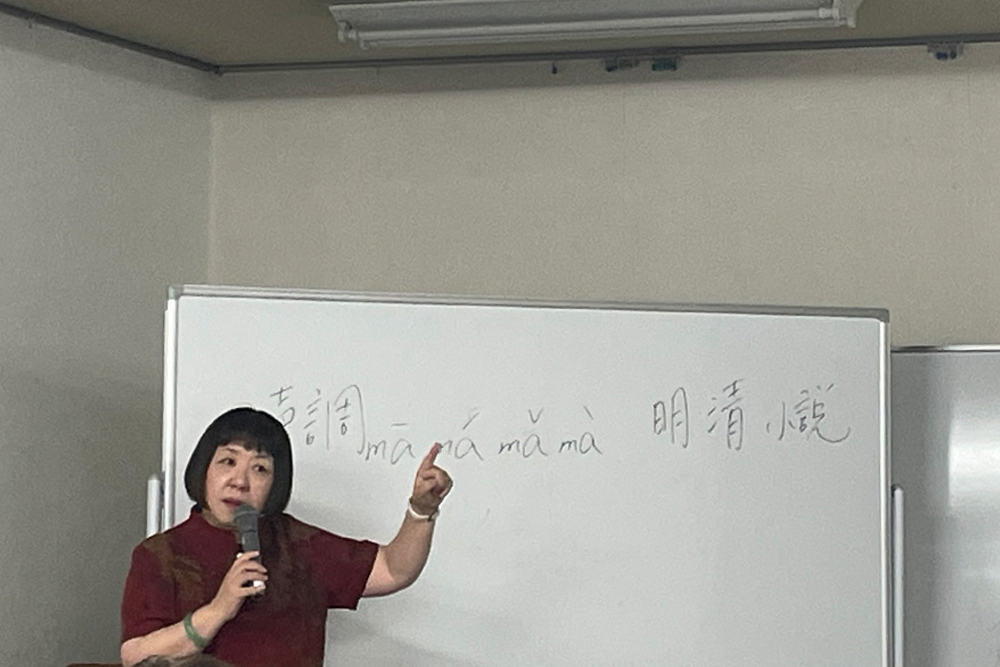 声調 mā má mǎ mà 明清小説